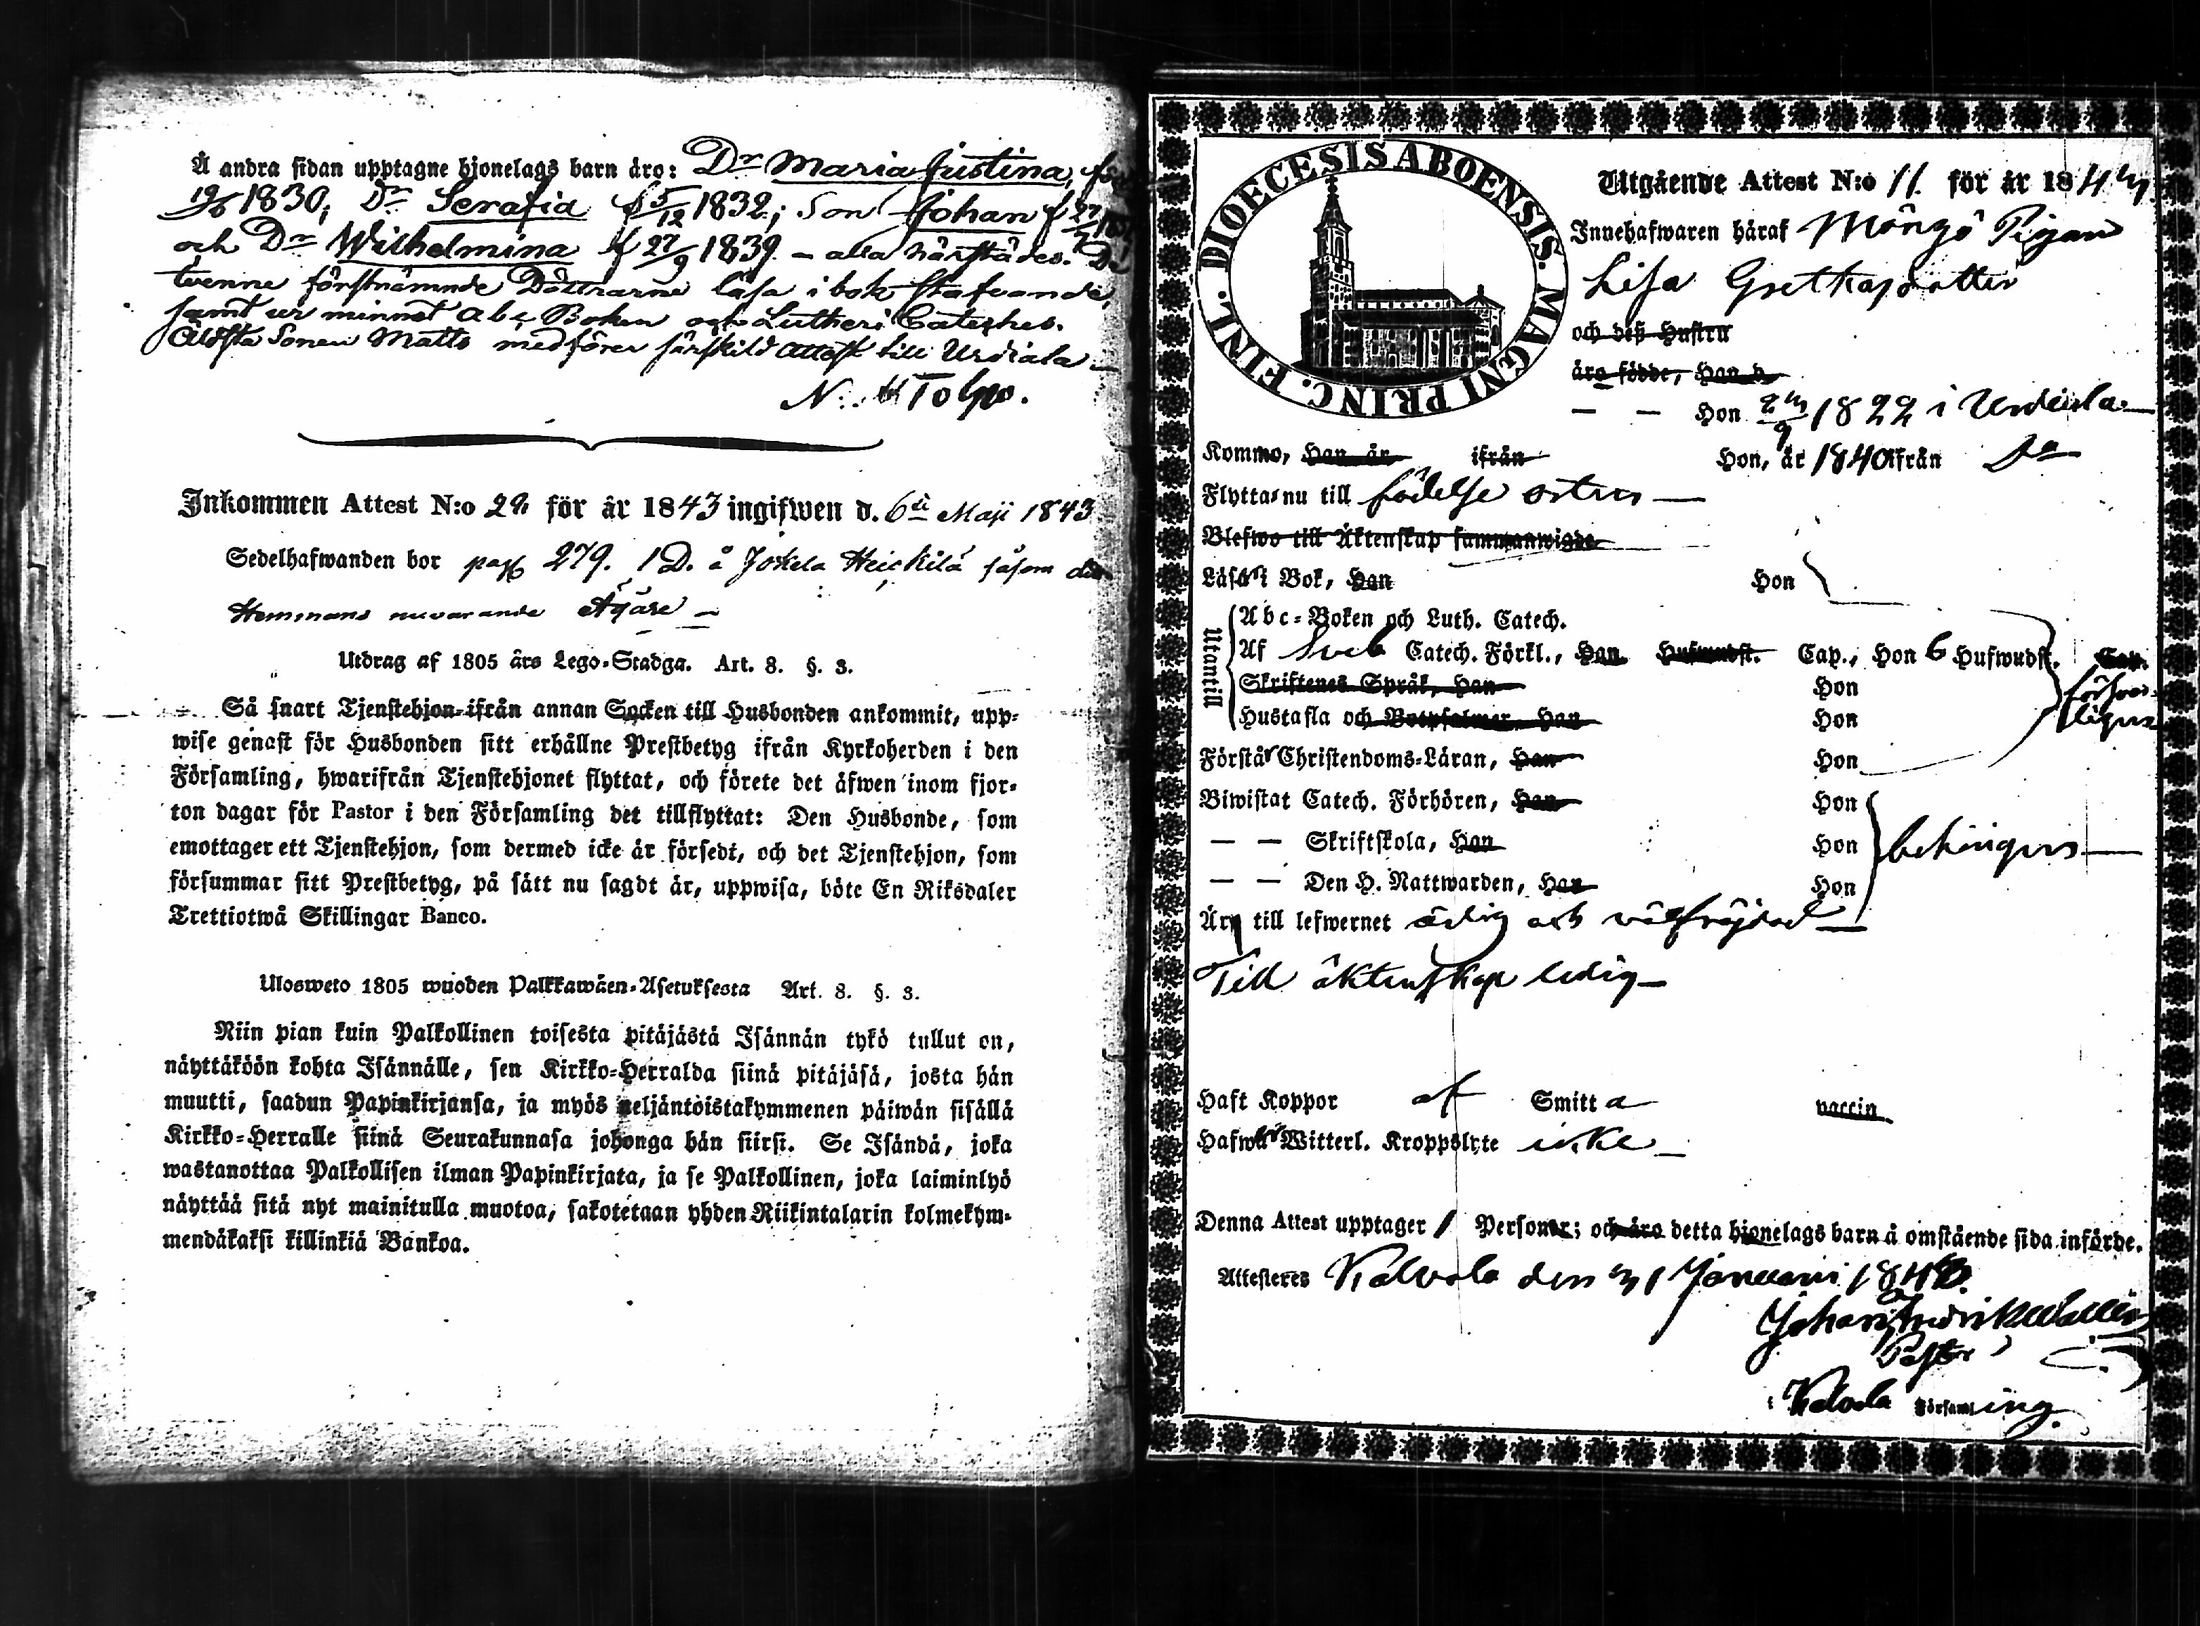 Å andra sidan upptagne hjonelags barn äro: Dr Maria Justina,
19/6 1830; Dr Serafia f 5/12 1832; Son Johan f 27/7
och Dr Wilhelmina f 27/9 1839 – alla härstädes. De
tvenne förstnämnde Döttrarne läsa i bok stafvande,
samt ur minnet Abc Boken och Lutheri Cateches.
Äldsta Sonen Matts medförer särskild Attest till Urdiala –
Inkommen Attest N:o 29 för år 1843 ingifwen d. 6te Maji 1843
Sedelhafwanden bor pag 279. 1 D. å Jokela Heickilä såsom
Hemmans nuvarande Ägare –
Utdrag af 1805 års Lego-Stadga. Art. 8. §. 3.
Så snart Tjenstehjon ifrån annan Socken till Husbonden ankommit, upp-
wise genast för Husbonden sitt erhållne Prestbetyg ifrån Kyrkoherden i den
Församling, hwarifrån Tjenstehjonet flyttat, och förete det äfwen inom fjor-
ton dagar för Pastor i den Församling det tillflyttat: Den Husbonde, som
emottager ett Tjenstehjon, som dermed icke är försedt, och det Tjenstehjon, som
försummar sitt Prestbetyg, på sätt nu sagdt är, uppwisa, böte En Riksdaler
Trettiotwå Skillingar Banco.
Ulosweto 1805 wuoden Palkkawäen-Asetuksesta Art. 8. §. 3.
Niin pian kuin Palkollinen toisesta pitäjästä Isännän tykö tullut on,
näyttäköön kohta Isännälle, sen Kirkko-Herralda siinä pitäjäsä, josta hän
muutti, saadun Papinkirjansa, ja myös neljäntoistakymmenen päiwän sisällä
Kirkko-Herralle siinä Seurakunnasa johonga hän siirsi. Se Isändä, joka
wastanottaa Palkollisen ilman Papinkirjata, ja se Palkollinen, joka laiminlyö
näyttää sitä nyt mainitulla muotoa, sakotetaan yhden Riikintalarin kolmekym-
mendäkaksi killinkiä Bankoa.
DIOECESIS ABOENSIS. MAGNI PRINC. FINL.
Utgående Attest N:o 11. för år 1843
Innehafwaren häraf Möngö Pigan
Lisa Gretha dotter
och deß Hustru
äro födde, Han d.
— — Hon 23/9 1822 i Urdiala –
Kommo, Han år ifrån Hon, år 1840 ifrån Do
Flytta nu till födelse orten –
Blefwo till Äktenskap sammanwigde
Läsa i Bok, Han Hon
Utantill
Abc-Boken och Luth. Catech.
Af Sveb Catech. Förkl., Han Hufwudst. Cap., Hon 6 Hufwudst. Cap.
Skriftenes Språk, Han Hon
Hustafla och Botpsalmer, Han Hon
försvarligen
Förstår Christendoms-Läran, Han Hon
Biwistat Catech. Förhören, Han Hon
— — Skriftskola, Han Hon behörigen –
— — Den H. Nattwarden, Han Hon
Är till lefwernet ärlig och välfrejdad –
Till äktenskap ledig –
Haft Koppor af Smitta vaccin
Hafwer Witterl. Kroppslyte icke –
Denna Attest upptager 1 Personer; och äro detta hjonelags barn å omstående sida införde.
Attesteres Kalvola den 31 Januari 1843.
Pastor
i Kalvola Församling.